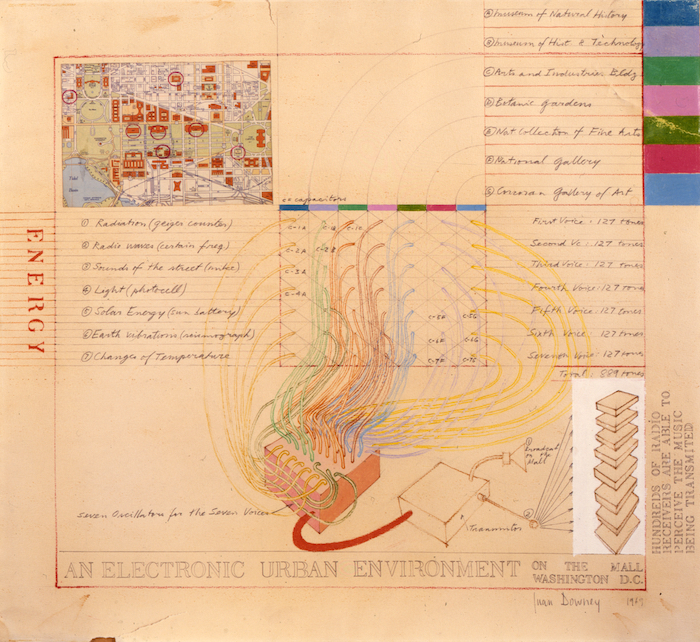 Ⓐ Museum of Natural History
Ⓑ Museum of Hist & Technology
Ⓒ Arts and Industries Bldg.
Ⓓ Botanic Gardens
Ⓔ Nat Collection of Fine Arts
Ⓕ National Gallery
Ⓖ Corcoran Gallery of Art
Tidal
Basin
capacitors
ENERGY
① Radiation (geiger counter)
② Radio waves (certain freq)
③ Sounds of the street (mike)
④ Light (photocell)
⑤ Solar Energy (sun battery)
⑥ Earth vibrations (seismograph)
⑦ Changes of Temperature
C-1A C-1B C-1C
C-2A C-2B
C-3A
C-4A
C-5F C-5G
C-6F C-6G
C-7F C-7G
First Voice: 127 tones
Second Vc: 127 tones
Third Voice: 127 tones
Fourth Voice: 127 tones
Fifth Voice: 127 tones
Sixth Voice: 127 tones
Seventh Voice: 127 tones
Total: 889 tones
Broadcast
on the
Mall
Transmitor
seven Oscillators for the Seven Voices
HUNDREDS OF RADIO
RECEIVERS ARE ABLE TO
PERCEIVE THE MUSIC
BEING TRANSMITED
AN ELECTRONIC URBAN ENVIRONMENT ON THE MALL
WASHINGTON D.C.
Juan Downey 1969